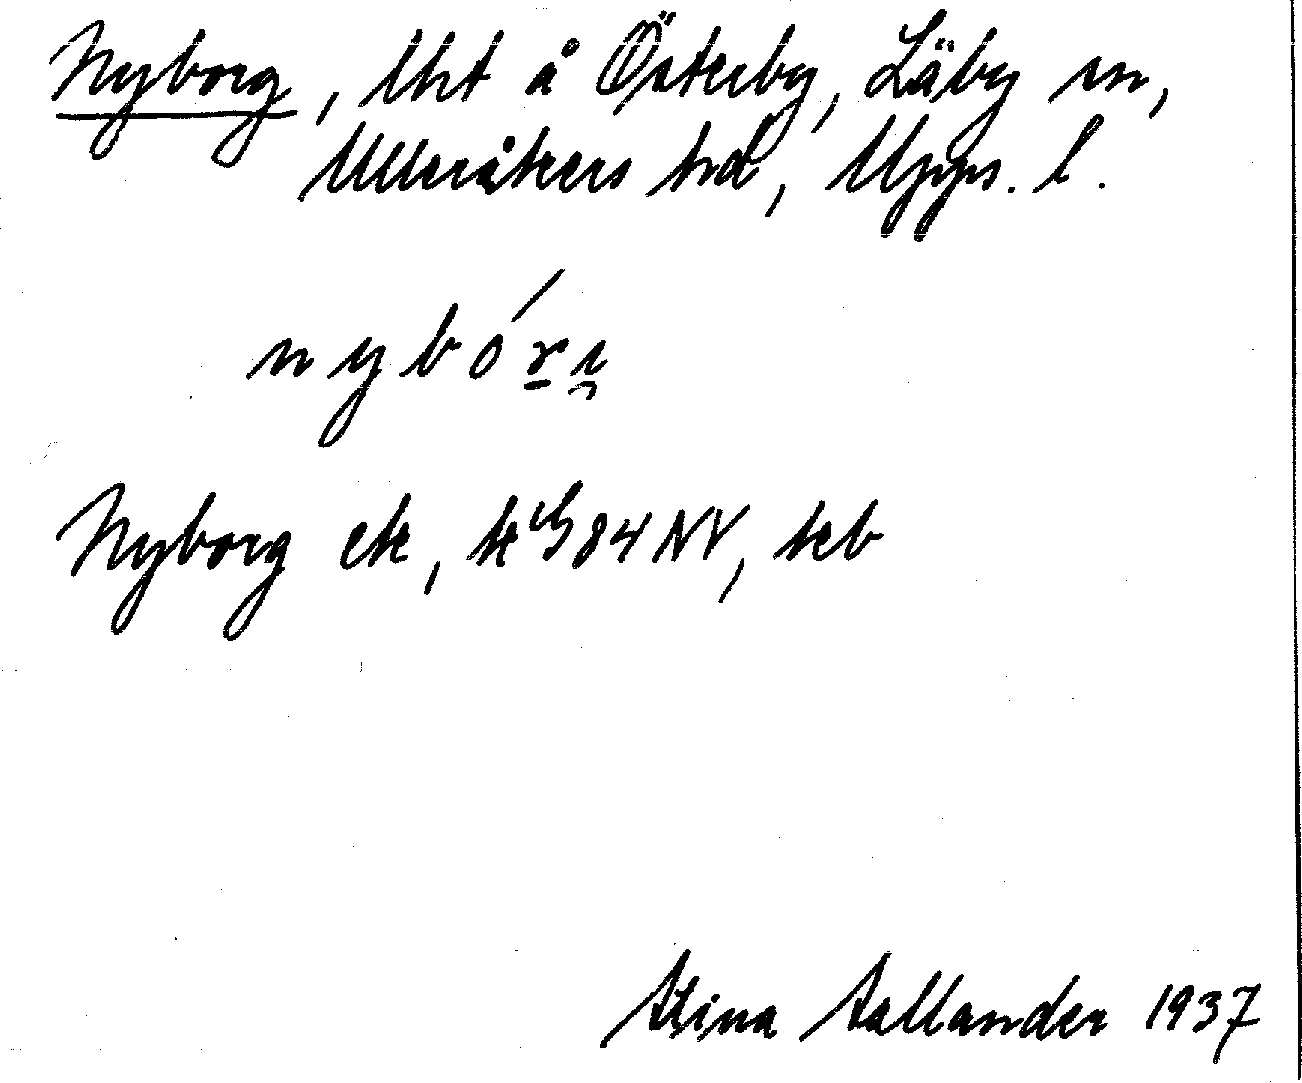 Nyborg, lht å Österby, Läby sn,
Ulleråkers hd, Upps. l.
nybórị
Nyborg ek, 84 NV,
Stina Hallander 1937